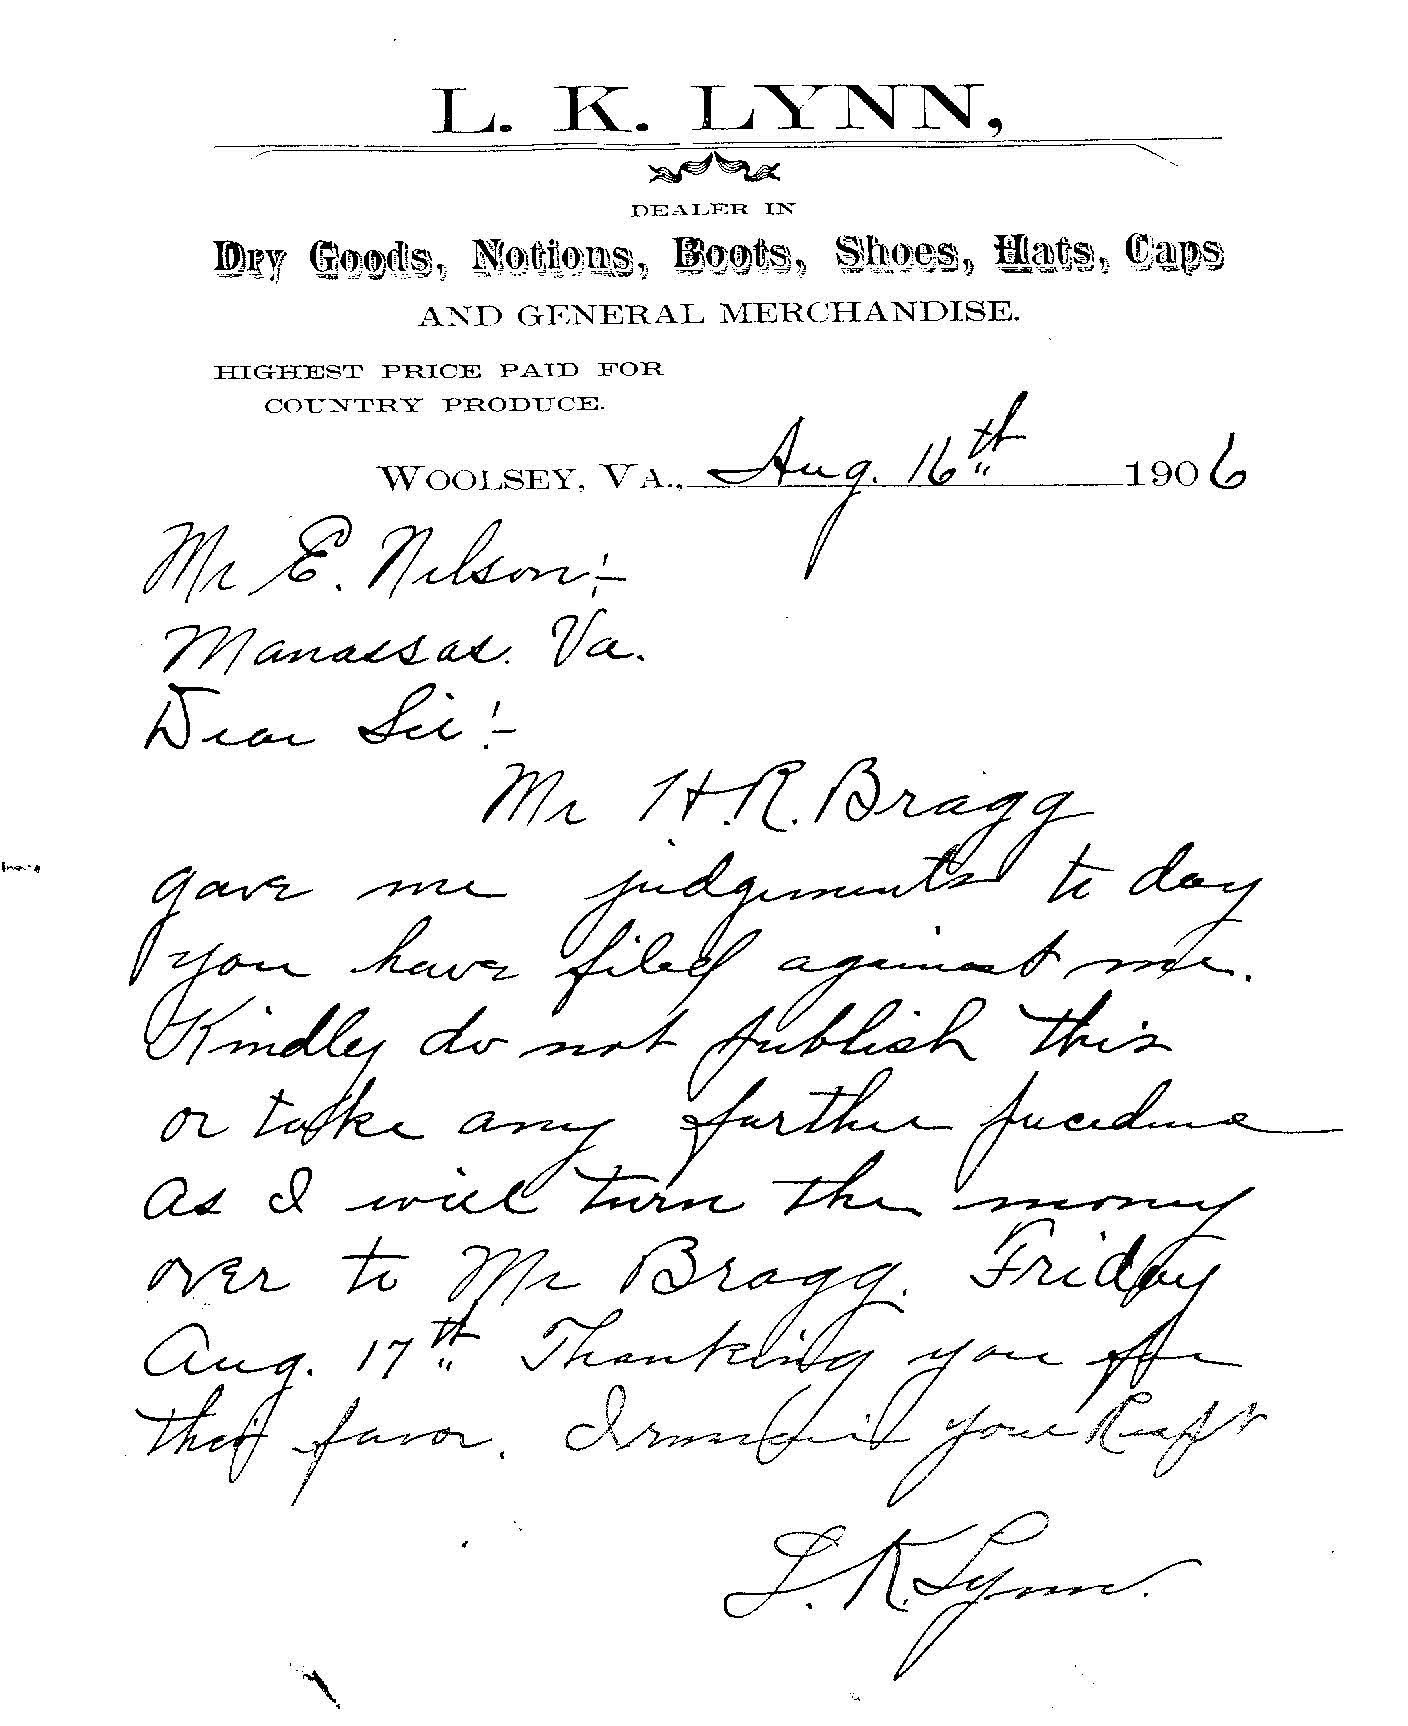 L. K. LYNN,
DEALER IN
Dry Goods, Notions, Boots, Shoes, Hats, Caps
AND GENERAL MERCHANDISE.
HIGHEST PRICE PAID FOR
COUNTRY PRODUCE.
WOOLSEY, VA., Aug. 16th 1906
Mr E. Nelson:-
Manassas. Va.
Dear Sir:-
Mr H.R. Bragg
gave me judgements to day
you have filed against me.
Kindly do not publish this
or take any further
as I will turn the money
over to Mr Bragg. Friday
Aug. 17th Thanking you for
this favor. I remain your Respt
L. K. Lynn.